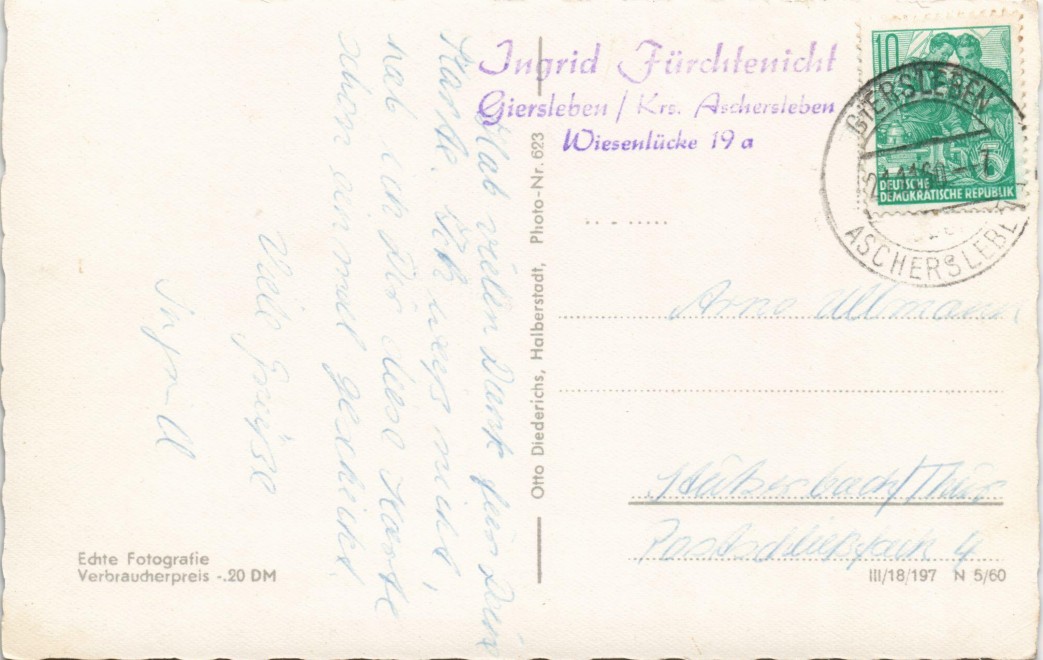 Ingrid Fürchtenicht
Giersleben / Krs. Aschersleben
Wiesenlücke 19 a
10
DEUTSCHE
DEMOKRATISCHE REPUBLIK
GIERSLEBEN
ASCHERSLEBEN
Hab vielen Dank für Dein
Karte. Ich weis nicht,
hab ich Dir diese Karte
schon einmal geschickt.
Viele Grüße
Otto Diederichs, Halberstadt, Photo-Nr. 623
Arno Ullmann
Stützerbach/Thür
Postschließfach 4
Echte Fotografie
Verbraucherpreis -.20 DM
III/18/197 N 5/60